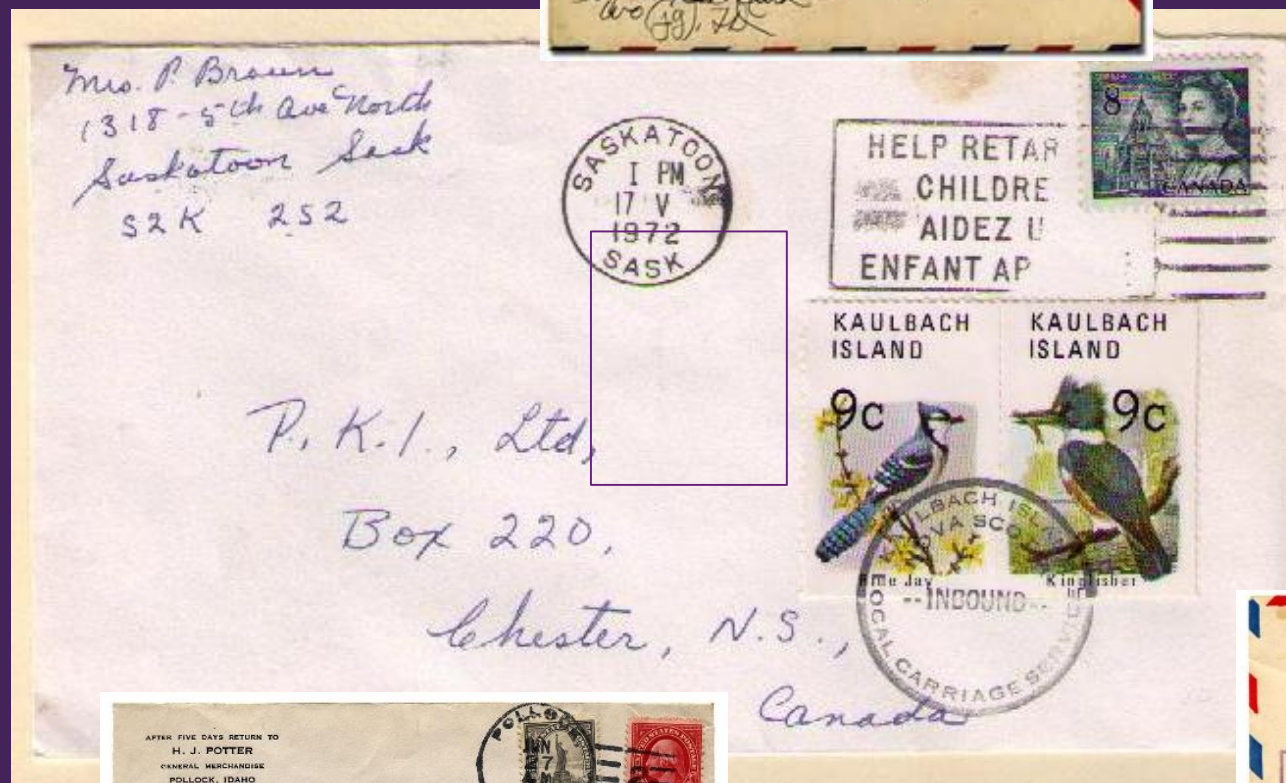 Avo (jg).
Mrs. P. Brown
1318-5th Ave North
Saskatoon Sask
S2K 2S2
SASKATOON
1 PM
17 V
1972
SASK
HELP RETAR
CHILDRE
AIDEZ U
ENFANT AP
8
CANADA
KAULBACH
ISLAND
9c
Blue Jay
KAULBACH
ISLAND
9c
Kingfisher
KAULBACH ISLAND
NOVA SCO
--INBOUND--
LOCAL CARRIAGE SERVICE
P.K.I., Ltd,
Box 220,
Chester, N.S.,
Canada
AFTER FIVE DAYS RETURN TO
H. J. POTTER
GENERAL MERCHANDISE
POLLOCK, IDAHO
POLLO
JUN
7
UNITED STATES POSTAGE